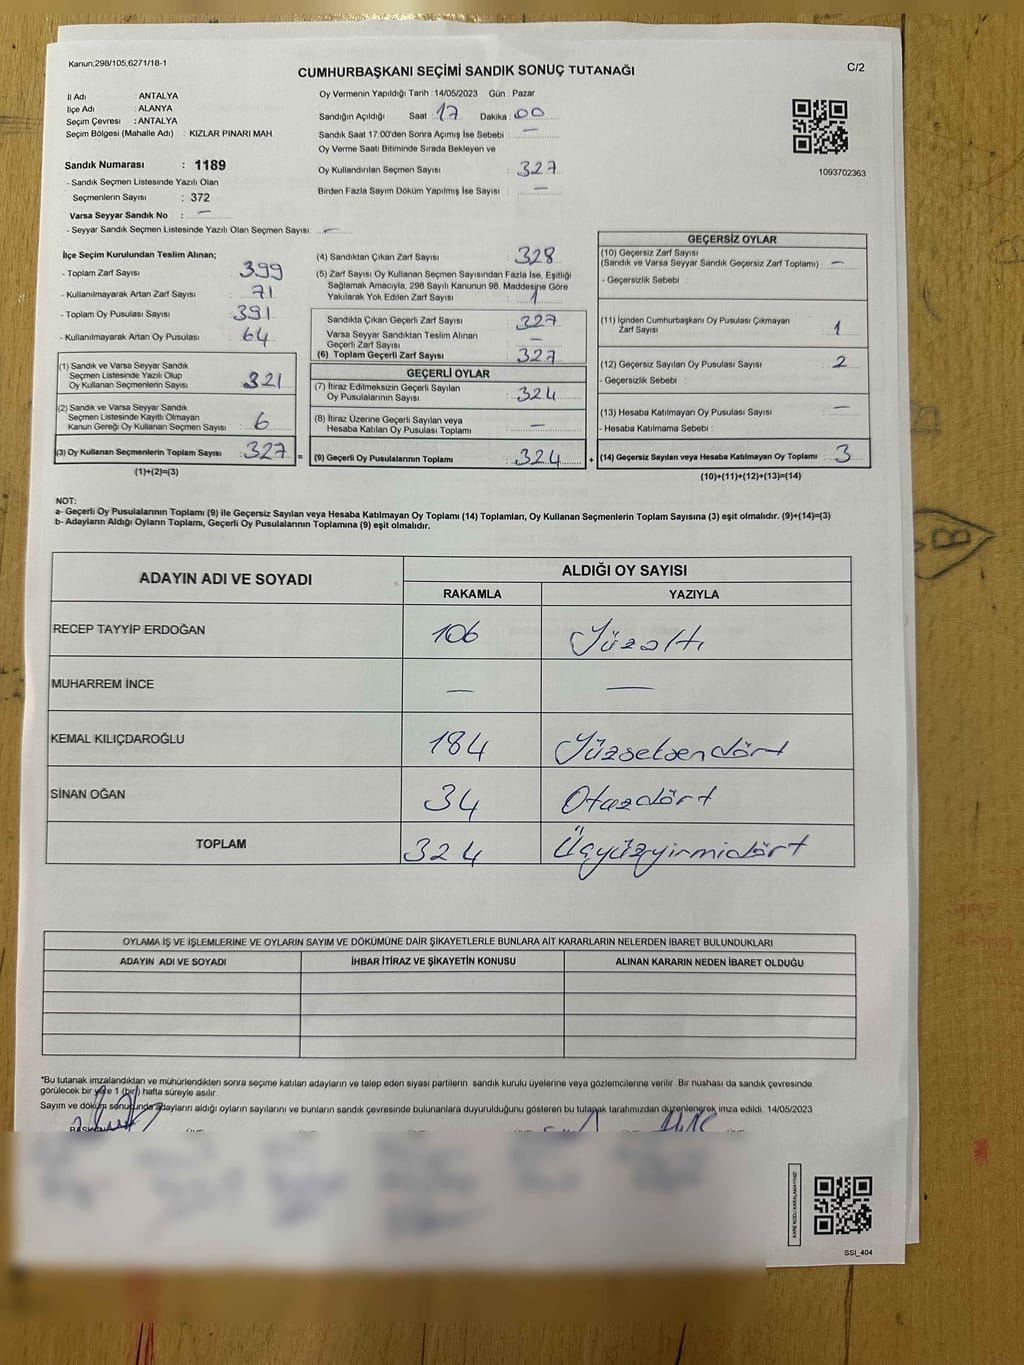 Kanun;298/105,6271/18-1
CUMHURBAŞKANI SEÇİMİ SANDIK SONUÇ TUTANAĞI
C/2
İl Adı : ANTALYA
İlçe Adı : ALANYA
Seçim Çevresi : ANTALYA
Seçim Bölgesi (Mahalle Adı) : KIZLAR PINARI MAH.
Sandık Numarası : 1189
- Sandık Seçmen Listesinde Yazılı Olan
Seçmenlerin Sayısı : 372
Varsa Seyyar Sandık No : —
- Seyyar Sandık Seçmen Listesinde Yazılı Olan Seçmen Sayısı: —
Oy Vermenin Yapıldığı Tarih : 14/05/2023 Gün : Pazar
Sandığın Açıldığı Saat : 17 Dakika : 00
Sandık Saat 17:00'den Sonra Açımış İse Sebebi : —
Oy Verme Saati Bitiminde Sırada Bekleyen ve
Oy Kullandırılan Seçmen Sayısı : 327
Birden Fazla Sayım Döküm Yapılmış İse Sayısı : —
1093702363
İlçe Seçim Kurulundan Teslim Alınan;
- Toplam Zarf Sayısı : 399
- Kullanılmayarak Artan Zarf Sayısı : 71
- Toplam Oy Pusulası Sayısı : 391
- Kullanılmayarak Artan Oy Pusulası : 64
(1) Sandık ve Varsa Seyyar Sandık
Seçmen Listesinde Yazılı Olup
Oy Kullanan Seçmenlerin Sayısı : 321
(2) Sandık ve Varsa Seyyar Sandık
Seçmen Listesinde Kayıtlı Olmayan
Kanun Gereği Oy Kullanan Seçmen Sayısı : 6
(3) Oy Kullanan Seçmenlerin Toplam Sayısı : 327
(1)+(2)=(3)
(4) Sandıktan Çıkan Zarf Sayısı : 328
(5) Zarf Sayısı Oy Kullanan Seçmen Sayısından Fazla İse, Eşitliği
Sağlamak Amacıyla, 298 Sayılı Kanunun 98. Maddesine Göre
Yakılarak Yok Edilen Zarf Sayısı : 1
Sandıkta Çıkan Geçerli Zarf Sayısı : 327
Varsa Seyyar Sandıktan Teslim Alınan
Geçerli Zarf Sayısı : —
(6) Toplam Geçerli Zarf Sayısı : 327
GEÇERLİ OYLAR
(7) İtiraz Edilmeksizin Geçerli Sayılan
Oy Pusulalarının Sayısı : 324
(8) İtiraz Üzerine Geçerli Sayılan veya
Hesaba Katılan Oy Pusulası Toplamı : —
= (9) Geçerli Oy Pusulalarının Toplamı : 324
GEÇERSİZ OYLAR
(10) Geçersiz Zarf Sayısı
(Sandık ve Varsa Seyyar Sandık Geçersiz Zarf Toplamı) : —
- Geçersizlik Sebebi :
(11) İçinden Cumhurbaşkanı Oy Pusulası Çıkmayan
Zarf Sayısı : 1
(12) Geçersiz Sayılan Oy Pusulası Sayısı : 2
- Geçersizlik Sebebi :
(13) Hesaba Katılmayan Oy Pusulası Sayısı : —
- Hesaba Katılmama Sebebi :
+ (14) Geçersiz Sayılan veya Hesaba Katılmayan Oy Toplamı : 3
(10)+(11)+(12)+(13)=(14)
NOT:
a- Geçerli Oy Pusulalarının Toplamı (9) ile Geçersiz Sayılan veya Hesaba Katılmayan Oy Toplamı (14) Toplamları, Oy Kullanan Seçmenlerin Toplam Sayısına (3) eşit olmalıdır. (9)+(14)=(3)
b- Adayların Aldığı Oyların Toplamı, Geçerli Oy Pusulalarının Toplamına (9) eşit olmalıdır.
ADAYIN ADI VE SOYADI
ALDIĞI OY SAYISI
RAKAMLA YAZIYLA
RECEP TAYYİP ERDOĞAN 106 Yüzaltı
MUHARREM İNCE — —
KEMAL KILIÇDAROĞLU 184 Yüzseksendört
SİNAN OĞAN 34 Otuzdört
TOPLAM 324 Üçyüzyirmidört
OYLAMA İŞ VE İŞLEMLERİNE VE OYLARIN SAYIM VE DÖKÜMÜNE DAİR ŞİKAYETLERLE BUNLARA AİT KARARLARIN NELERDEN İBARET BULUNDUKLARI
ADAYIN ADI VE SOYADI İHBAR İTİRAZ VE ŞİKAYETİN KONUSU ALINAN KARARIN NEDEN İBARET OLDUĞU
*Bu tutanak imzalandıktan ve mühürlendikten sonra seçime katılan adayların ve talep eden siyasi partilerin sandık kurulu üyelerine veya gözlemcilerine verilir. Bir nüshası da sandık çevresinde
görülecek bir yere 1 (bir) hafta süreyle asılır.
Sayım ve döküm sonucunda adayların aldığı oyların sayılarını ve bunların sandık çevresinde bulunanlara duyurulduğunu gösteren bu tutanak tarafımızdan düzenlenerek imza edildi. 14/05/2023
BAŞKAN
KARE KODU KARALAMAYINIZ!
SSİ_404
B